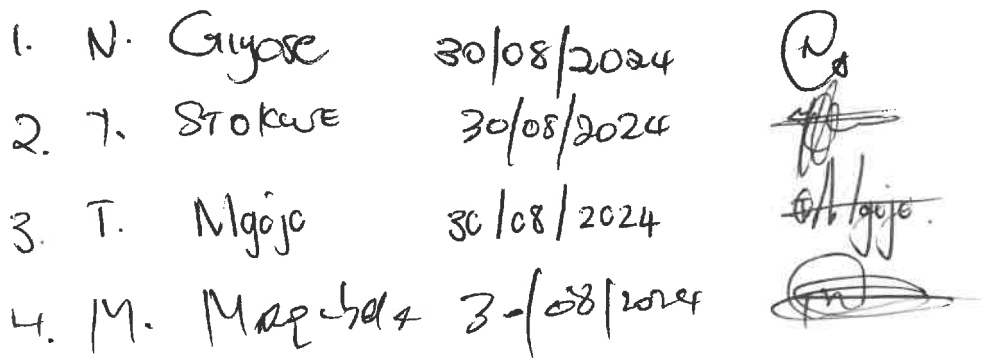 1. N. Giyose 30/08/2024
2. Y. STOKWE 30/08/2024
3. T. Mgójo 30/08/2024 Mgojo.
4. M. 3-/08/2024